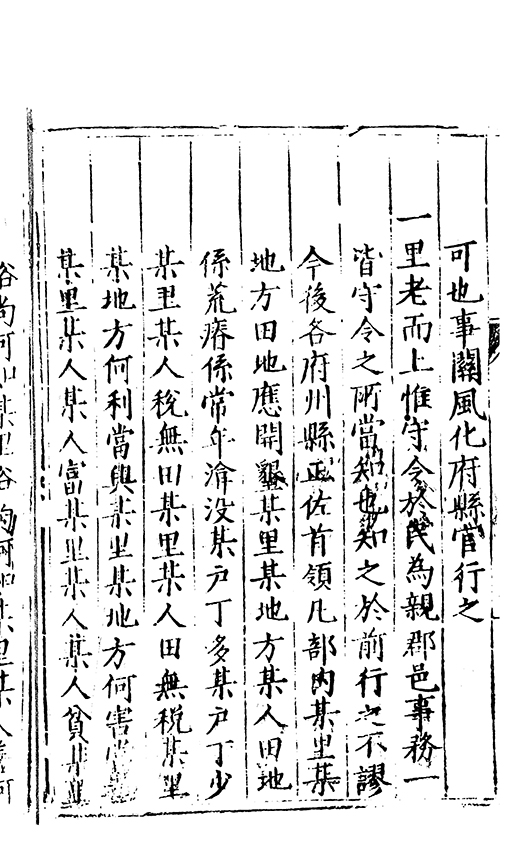 可也事關風化府縣官行之
一里老而上惟守令於民為親郡邑事務一
皆守令之所當知也知之於前行之不謬
今後各府州縣正佐首領凡部內某里某
地方田地應開墾某里某地方某人田地
係荒瘠係常年渰没某户丁多某户丁少
某里某人稅無田某里某人田無稅某里
某地方何利當與某里某地方何害當
某里某人某人富某里某人某人貧某里
俗尚何如某里俗